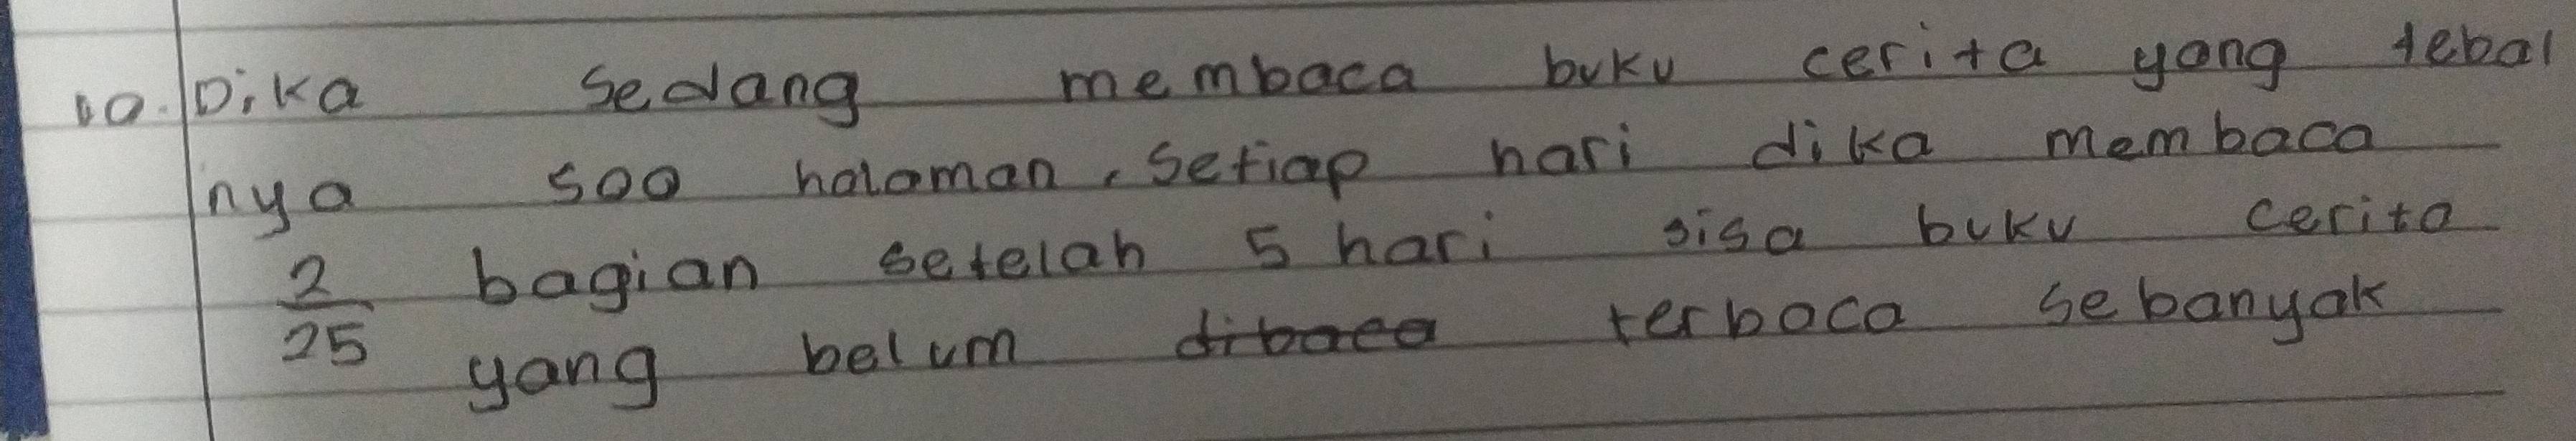 10. Dika sedang membaca buku cerita yang tebal
nya 500 halaman, setiap hari dika membaca
2/25 bagian setelah 5 hari sisa buku cerita
yang belum dibaca terbaca sebanyak